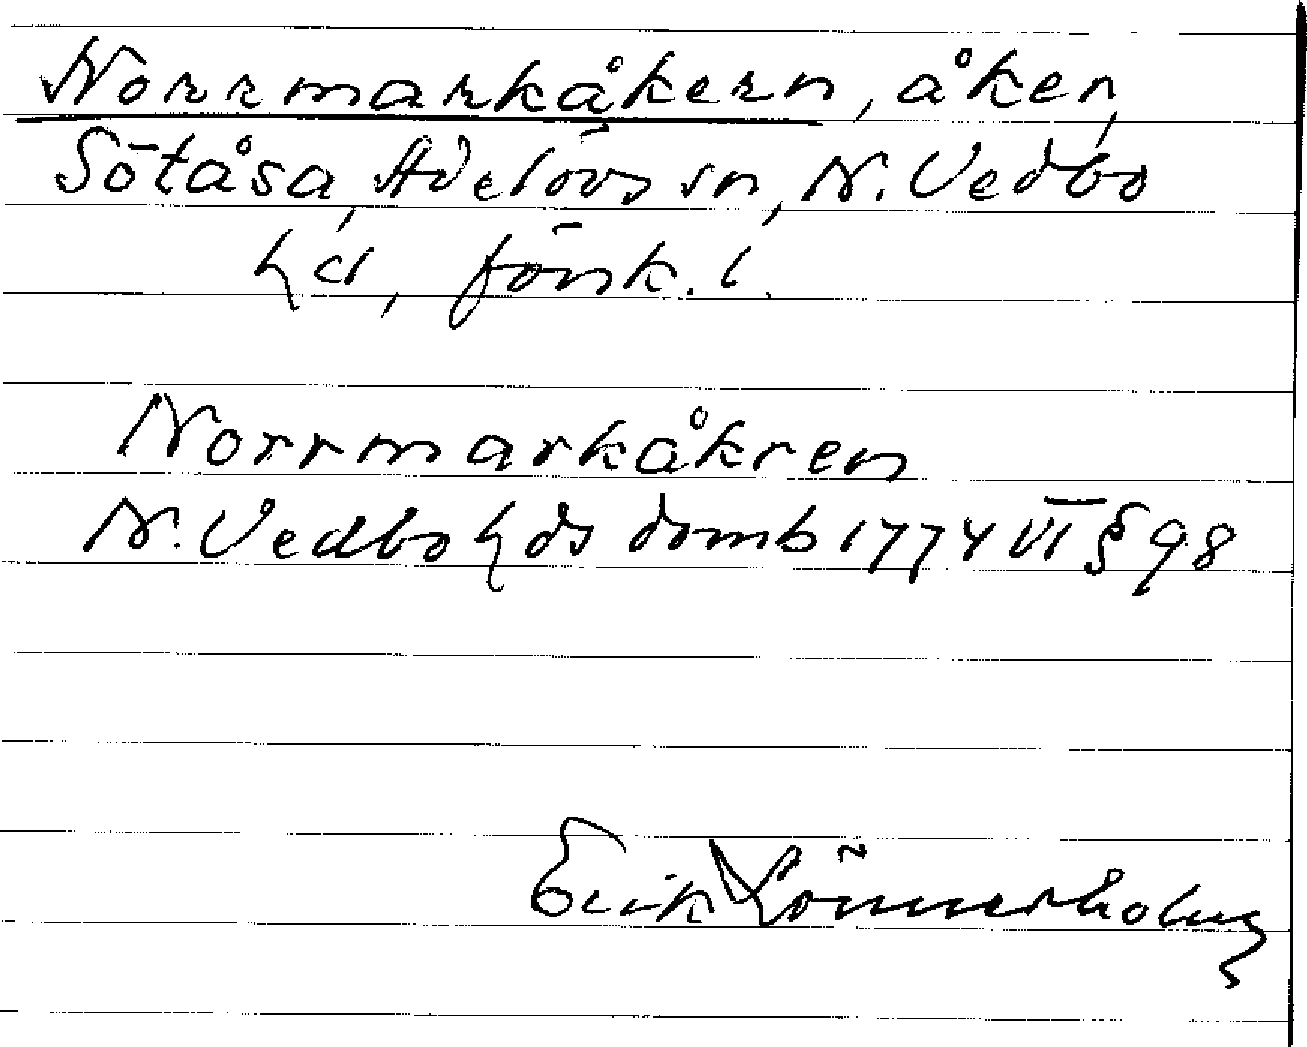 Norrmarkåkern, åker,
Sötåsa, Adelövs sn, N. Vedbo
hd, försk. l.
Norrmarkåkren
N. Vedbo hds domb 1774 VI § 98
Erik Lönnerholm